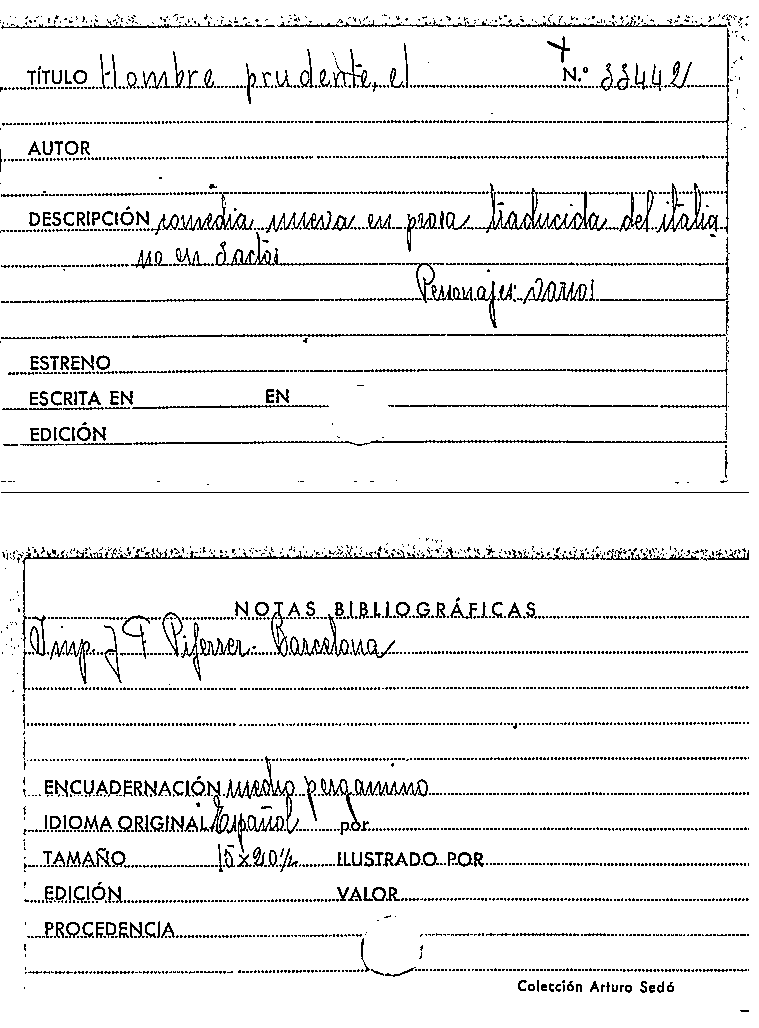 TÍTULO Hombre prudente, el N.º 33442
AUTOR
DESCRIPCIÓN comedia nueva en prosa traducida del italia
no en 3 actos
Personajes: varios
ESTRENO
ESCRITA EN EN
EDICIÓN
NOTAS BIBLIOGRÁFICAS
Imp. J F Piferrer. Barcelona
ENCUADERNACIÓN medio pergamino
IDIOMA ORIGINAL Español por
TAMAÑO 15 x 20½ ILUSTRADO POR
EDICIÓN VALOR
PROCEDENCIA
Colección Arturo Sedó